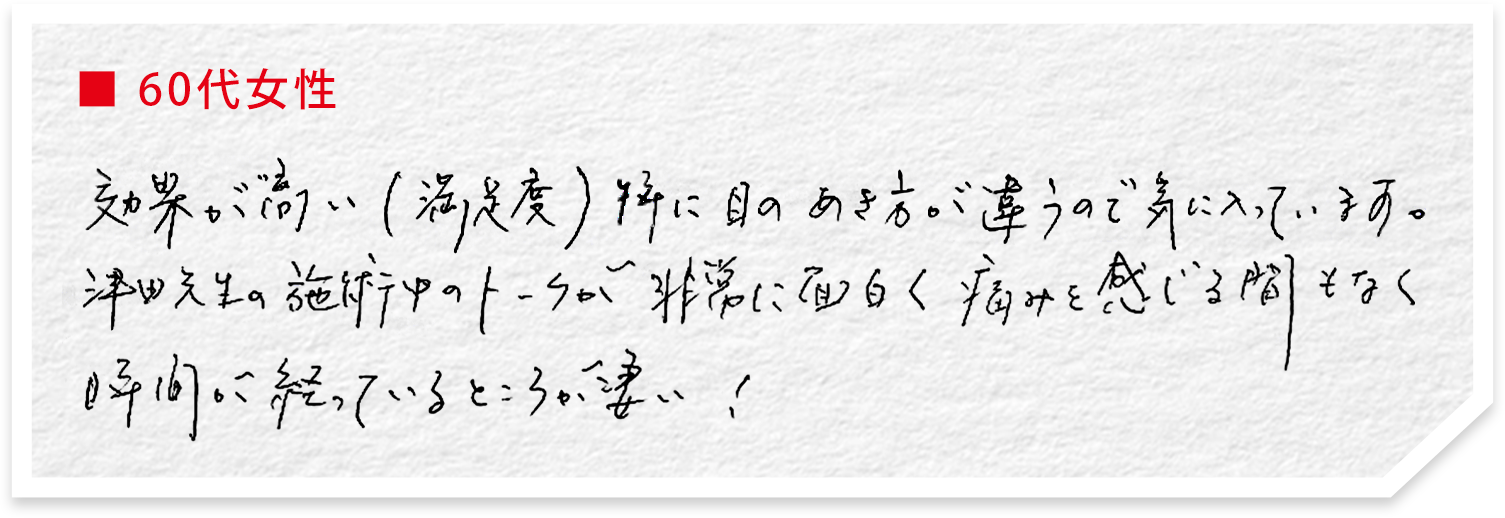 ■ 60代女性
効果が高い（満足度）特に目のあき方が違うので気に入っています。
津田先生の施術中のトークが非常に面白く痛みを感じる間もなく
時間が経っているところが凄い！